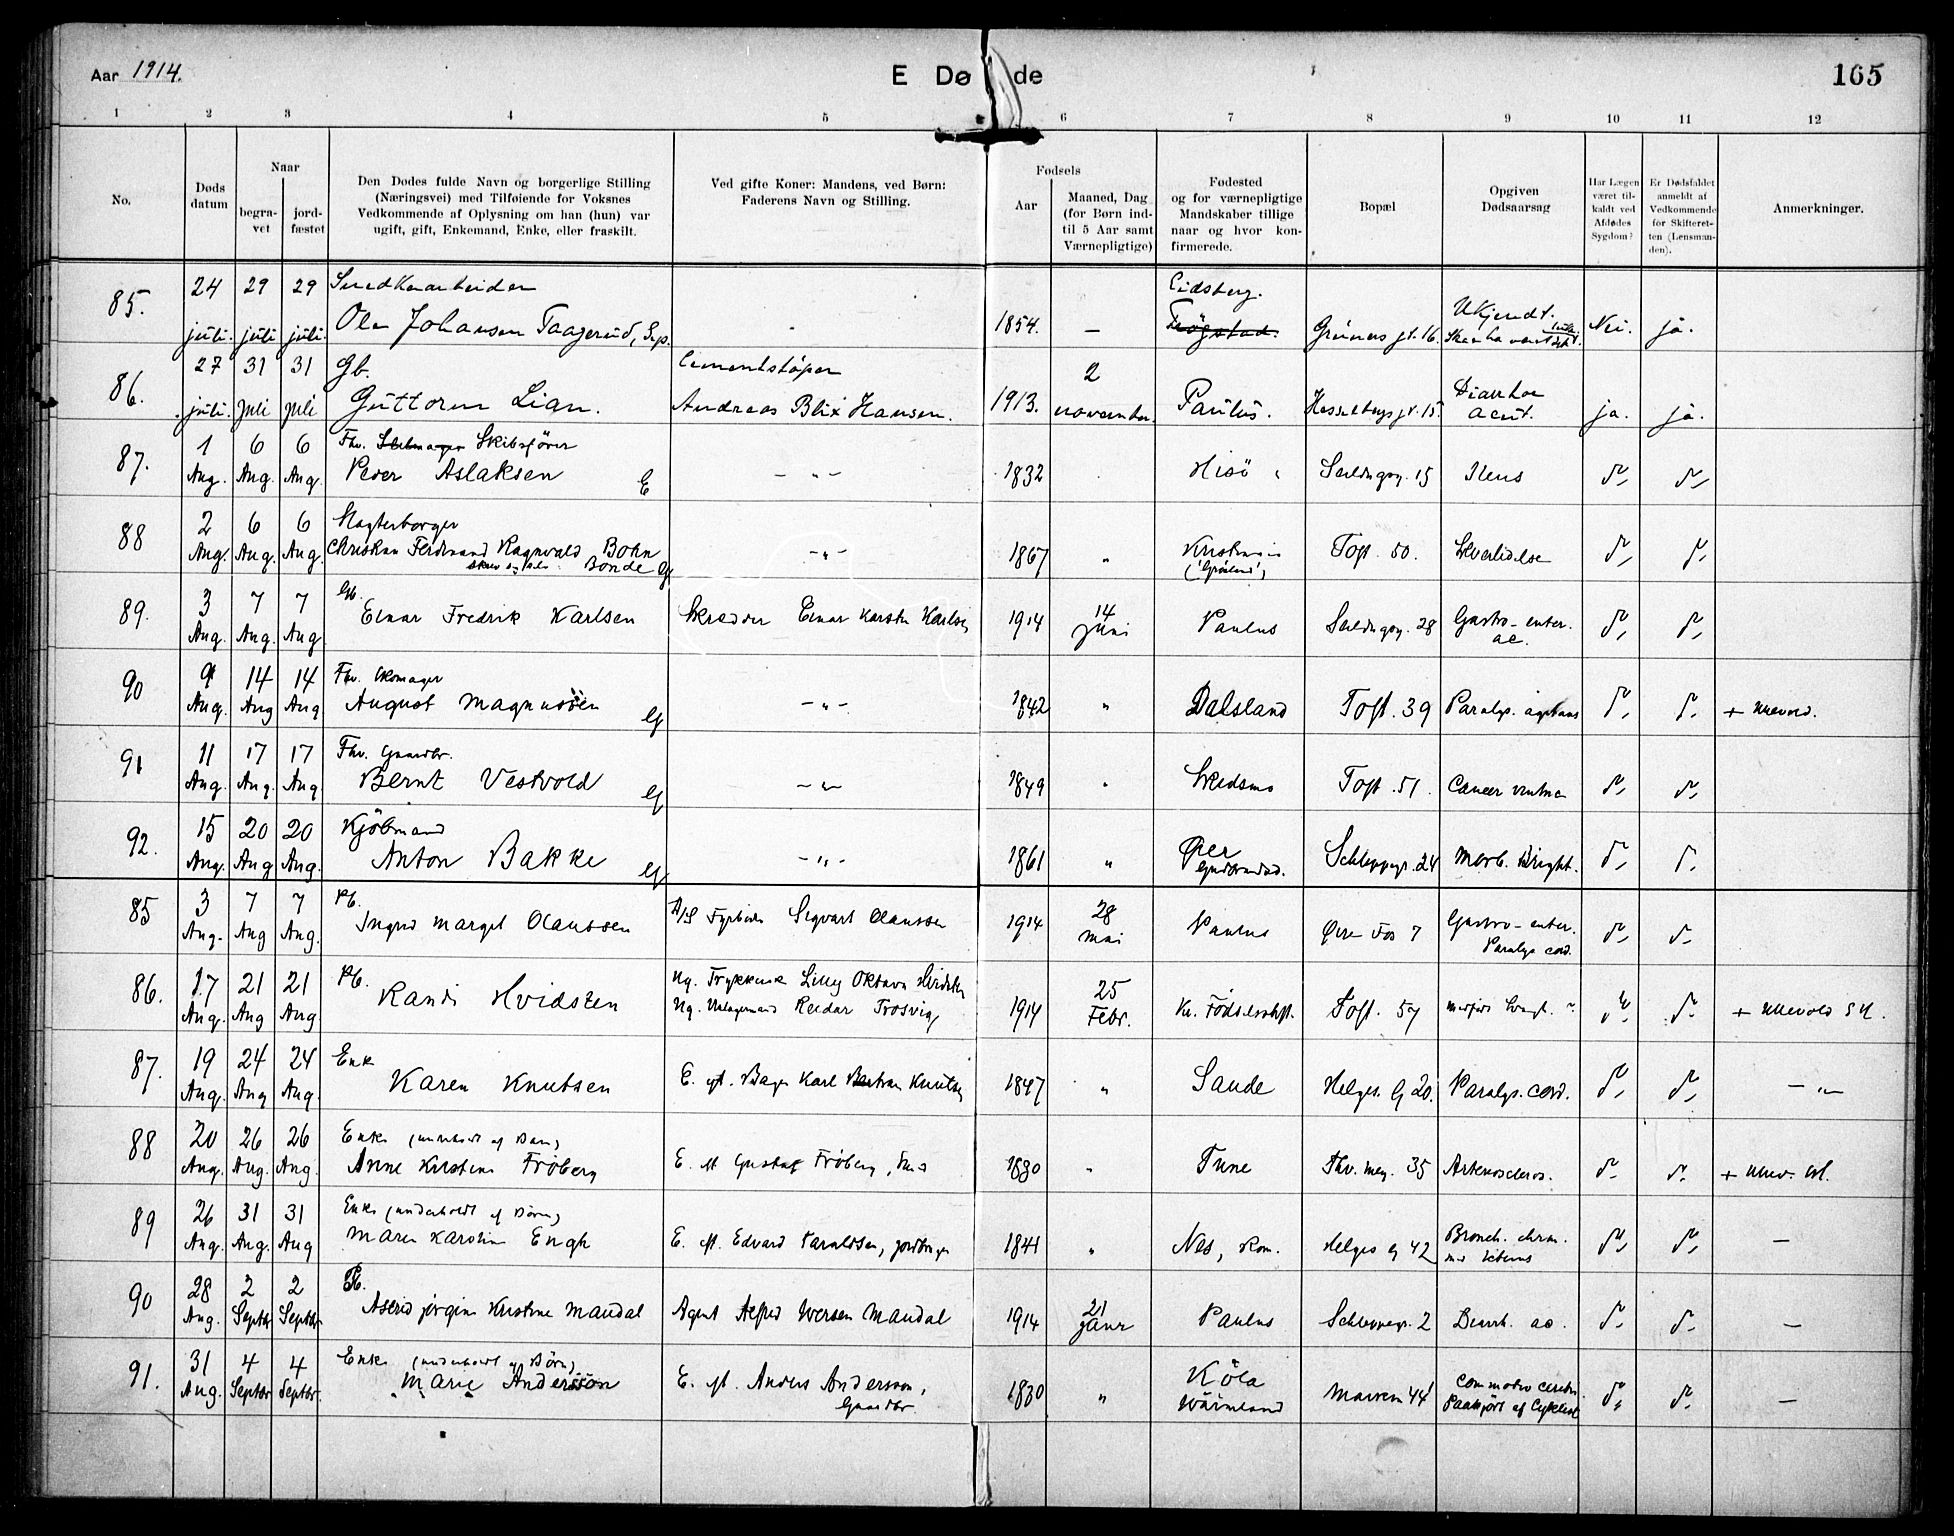 Aar 1914.
E Dø de
165
1 2 3 4 5 6 7 8 9 10 11 12
No.
Døds datum
Naar
begra-vet
jord-fæstet
Den Dødes fulde Navn og borgerlige Stilling
(Næringsvei) med Tilføiende for Voksnes
Vedkommende af Oplysning om han (hun) var
ugift, gift, Enkemand, Enke, eller fraskilt.
Ved gifte Koner: Mandens, ved Børn:
Faderens Navn og Stilling.
Fødsels
Aar
Maaned, Dag
(for Børn ind-
til 5 Aar samt
Værnepligtige)
Fødested
og for værnepligtige
Mandskaber tillige
naar og hvor kon-
firmerede.
Bopæl
Opgiven
Dødsaarsag
Har Lægen
været til-
kaldt ved
Afdødes
Sygdom?
Er Dødsfaldet
anmeldt af
Vedkommende
for Skifteret-
ten (Lensman-
den).
Anmerkninger.
85. 24 juli. 29 juli 29 juli. Snedkerarbeider
Ole Johansen Taagerud, Sep. 1854. — Eidsberg.
Trögstad. Grüners gt. 16. Ukjendt. Nei. ja.
86. 27 juli. 31 juli 31 juli Gb.
Guttorm Lian. Cimentstøper
Andreas Blix Hansen. 1913. 2 november. Paulus. Hesselbergs gt. 15 Diarrhoe
acut. ja. ja.
87. 1 Aug. 6 Aug. 6 Aug. Fhv. Skibsfører
Peder Aslaksen E — " — 1832 Hisö Seilduksg. 15 Ileus
88 2 Aug. 6 Aug. 6 Aug. Magterborger
Christian Ferdinand Ragnvald Bohn
Bonde Gf — " — 1867 " Kristiania
('Grønland') Toft. 50. Leverlidelse
89. 3 Aug. 7 Aug. 7 Aug Gb.
Einar Fredrik Karlsen Skrædder Einar Karsten Karlsen 1914 14 Juni Paulus Seilduksg. 28 Gastro-enter.
ac.
90 9 Aug. 14 Aug 14 Aug Fhv. Skomager
August Magnussen Gf — " — 1842 " Dalsland Toft. 39 Paralys. agitans + Ullevold.
91 11 Aug. 17 Aug. 17 Aug Fhv. Gaardbr.
Bernt Vestvold Gf — " — 1849 " Skedsmo Toft. 51. Cancer ventric
92. 15 Aug. 20 Aug 20 Aug. Kjöbmand
Anton Bakke Gf — " — 1861 " Øier
Gudbrandsd. Schleppegr. 24 Morb. Bright.
85 3 Aug. 7 Aug 7 Aug. Pb.
Ingrid Margit Olaussen A/S Fyrbøder Sigvart Olaussen 1914 28 Mai Paulus Øvre Fos 7 Gastro-enter.
Paralys cord.
86. 17 Aug. 21 Aug 21 Aug Pb.
Randi Hvidsten Ug. Trykkersk Lilly Oktavia Hvidsten
Ug. Reidar Trosvig 1914 25 Febr. Kr. Fødselsstift. Toft. 57 + Ullevold SH.
87. 19 Aug. 24 Aug 24 Aug. Enke
Karen Knutsen E. eft. Bager Karl Bertram Knutsen 1847 " Sande Helges. G 20. Paralys. cord. — " —
88 20 Aug. 26 Aug. 26 Aug. Enke (underholdt af Barn)
Anne Kirstine Fröberg E. eft Gustaf Fröberg, 1830 " Tune Thv. mey. 35 Arterioscleros. + Ullev.
89 26 Aug. 31 Aug. 31 Aug Enke (underholdt af Börn)
Maren Karoline Engh E. eft. Edvard Haraldsen, Jordbruger 1841 " Nes, Rom. Helges g 42 Bronch. chron. —
90 28 Aug. 2 Septbr 2 Septbr Pb.
Astrid Jørgine Kristine Mandal Agent Alfred Iversen Mandal 1914 21 Janr Paulus Schleppegr. 2 Diarrh. ac. —
91. 31 Aug. 4 Septbr 4 Septbr. Enke (underholdt af Börn)
Marie Andersson E. eft. Anders Andersson,
Gaardbr. 1830 " Köla
Wärmland Markvn 44 Commotio cerebri.
Paakjört af Cyklist —